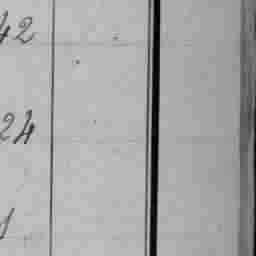 42
24
1